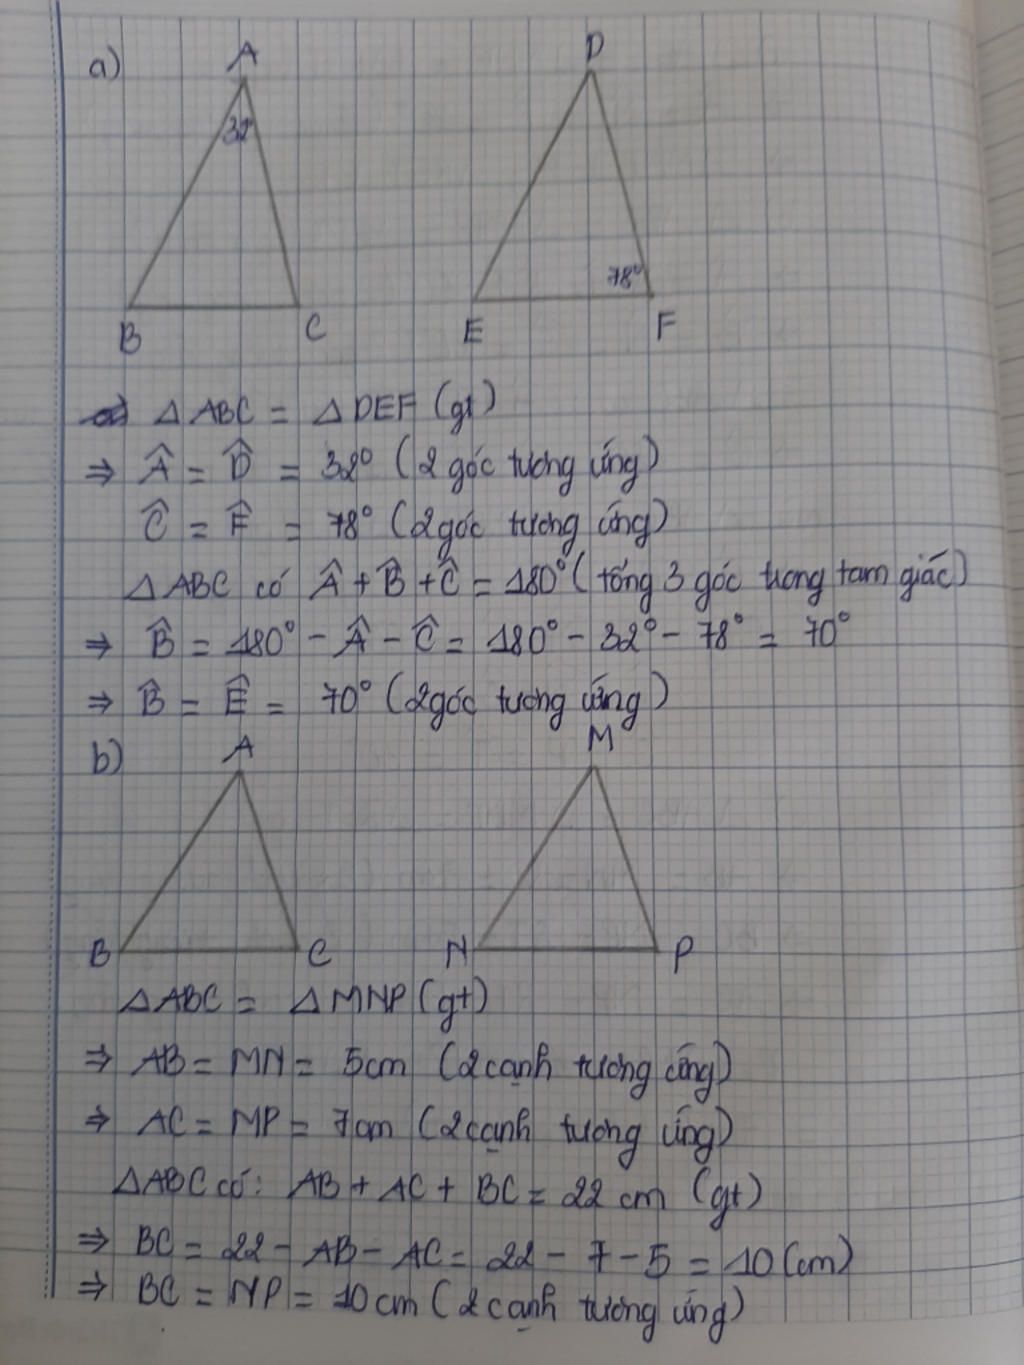 a)
A
D
32°
78°
B
C
E
F
△ ABC = △ DEF (gt)
⇒ Â = D̂ = 32° (2 góc tương ứng)
Ĉ = F̂ = 78° (2 góc tương ứng)
△ ABC có Â + B̂ + Ĉ = 180° (tổng 3 góc trong tam giác)
⇒ B̂ = 180° - Â - Ĉ = 180° - 32° - 78° = 70°
⇒ B̂ = Ê = 70° (2 góc tương ứng)
b)
A
M
B
C
N
P
△ABC = △MNP (gt)
⇒ AB = MN = 5cm (2 cạnh tương ứng)
⇒ AC = MP = 7cm (2 cạnh tương ứng)
△ABC có: AB + AC + BC = 22 cm (gt)
⇒ BC = 22 - AB - AC = 22 - 7 - 5 = 10 (cm)
⇒ BC = NP = 10cm (2 cạnh tương ứng)